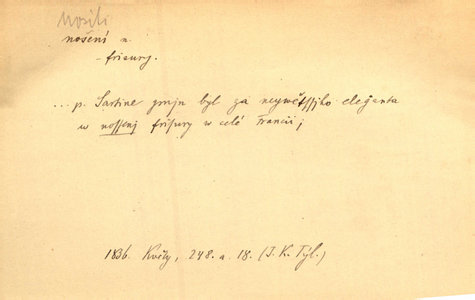 Nositi
nošení n.
- frisury.
... p. Sartine prajn byl za neywětssjho eleganta
w nossenj frisury w celé Francii;
1836. Květy, 248. a. 18. (J. K. Tyl.)